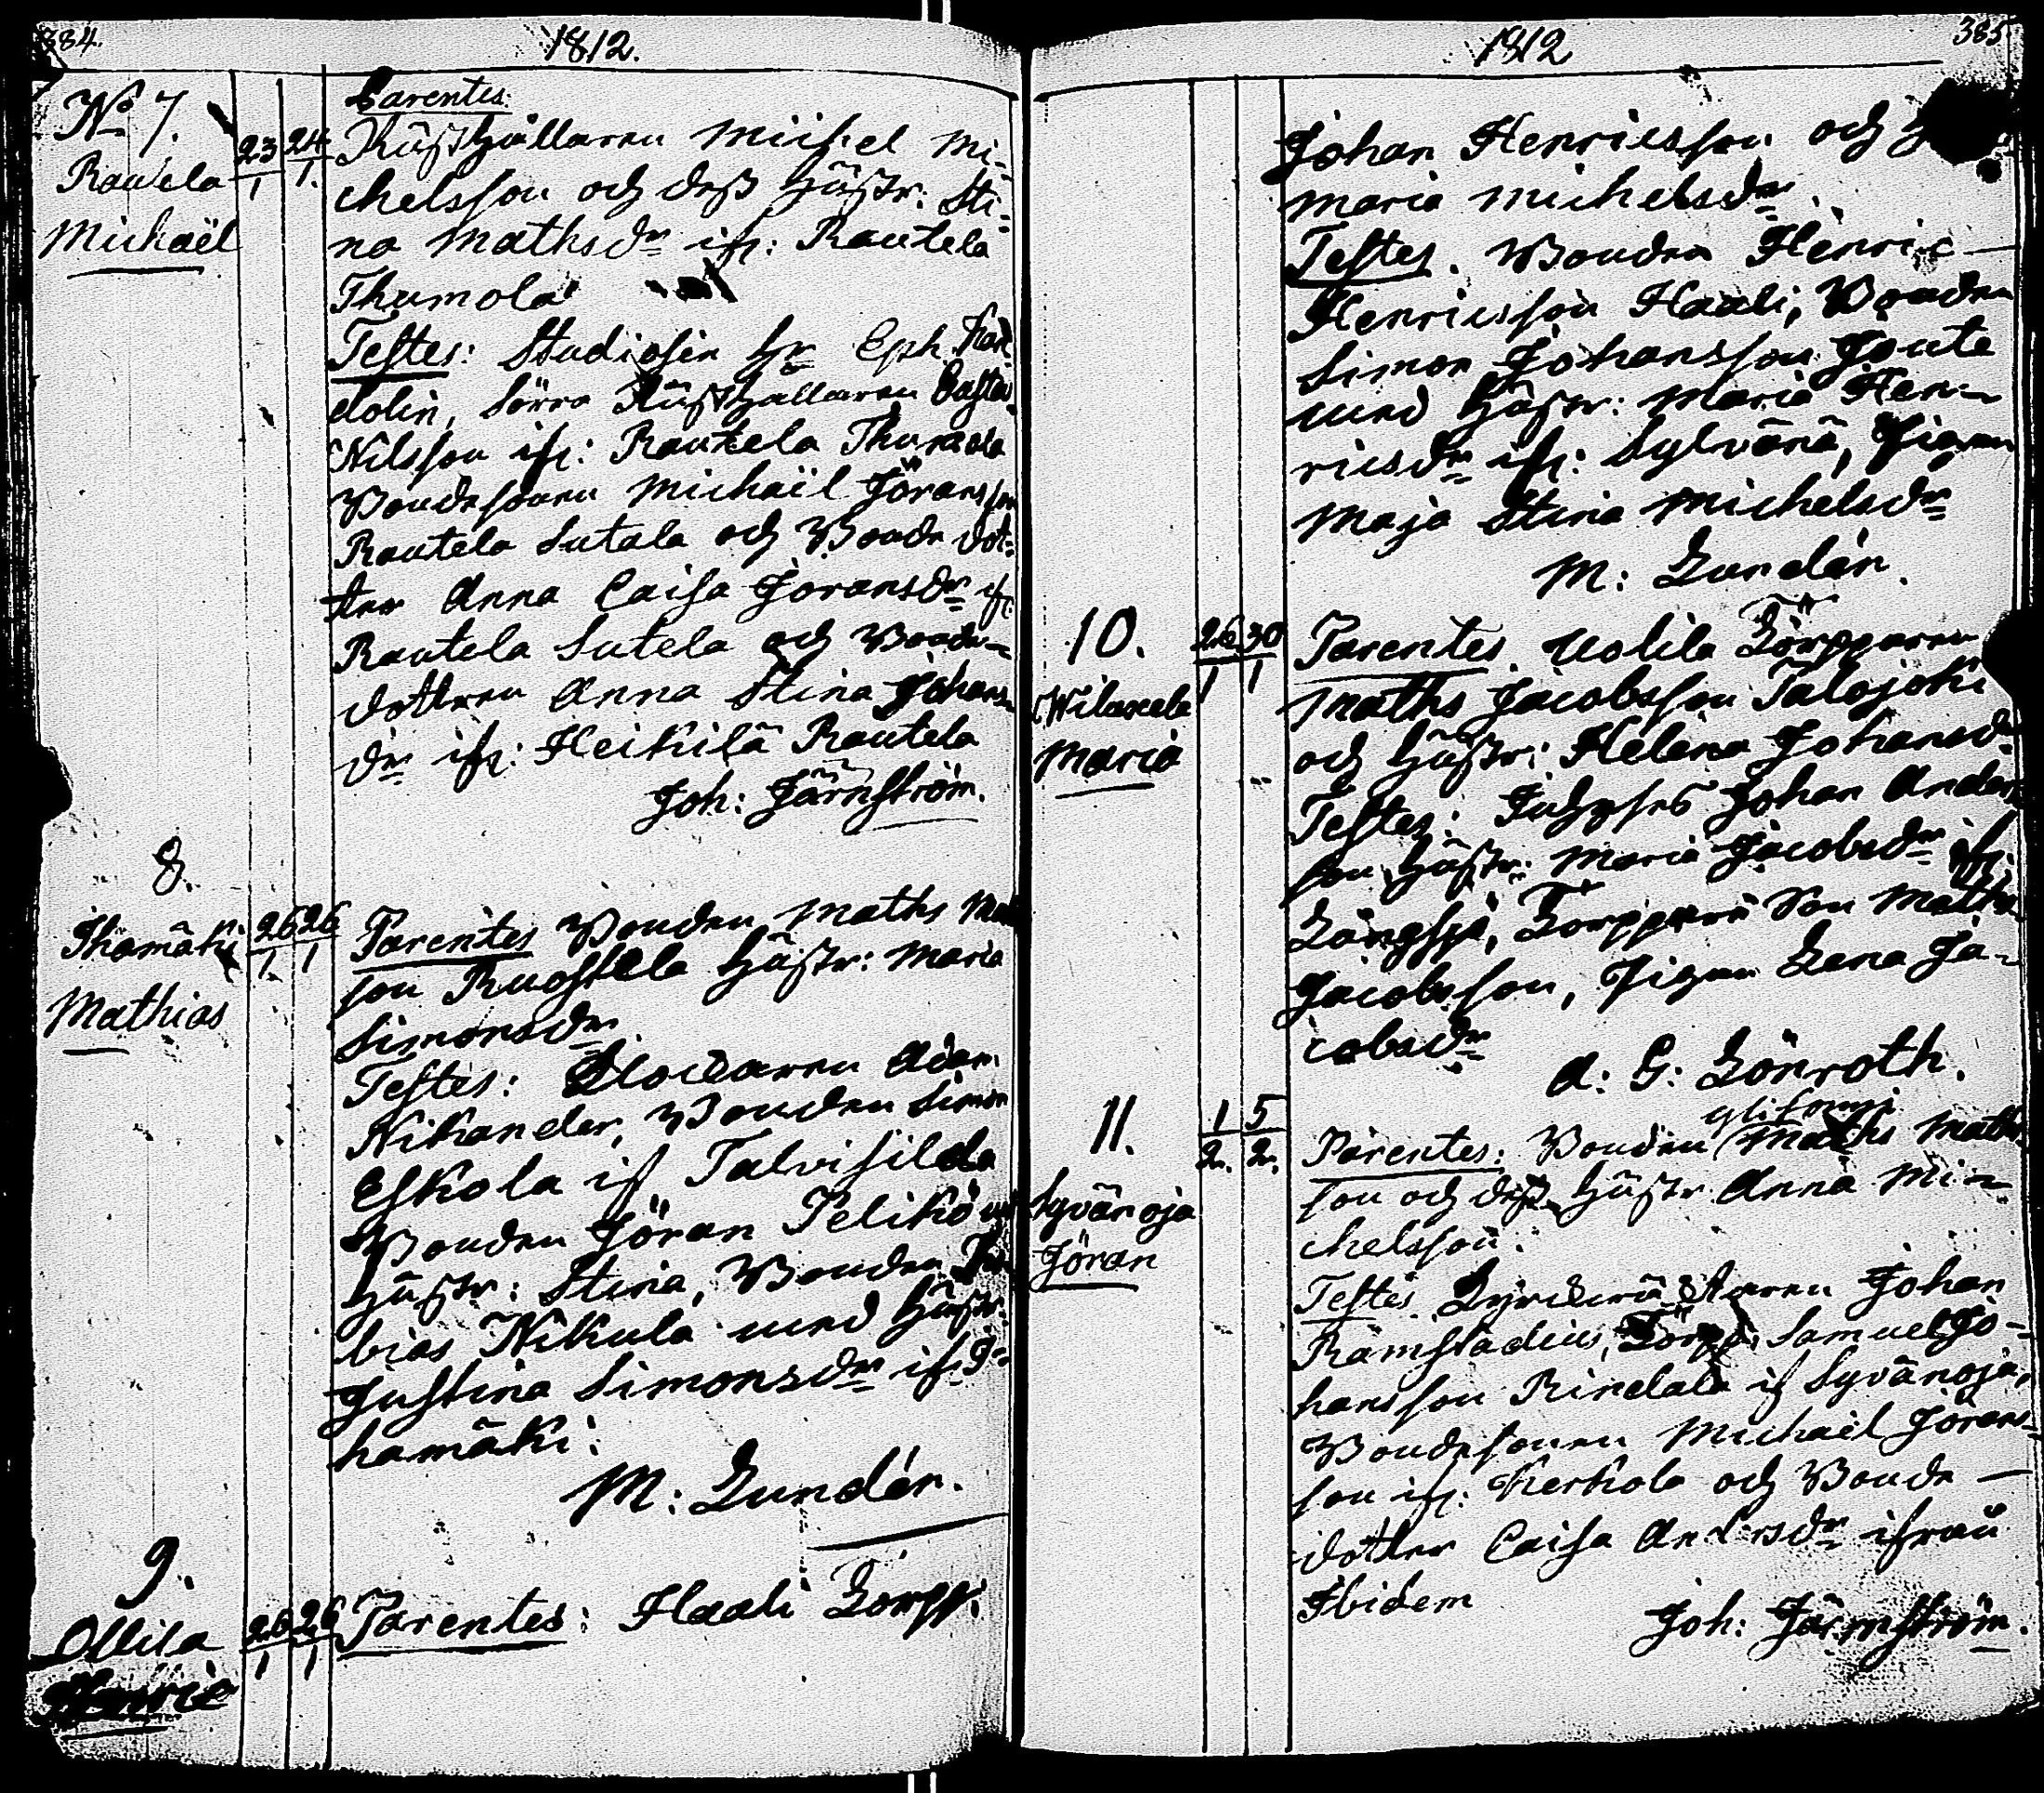 384.
1812.
No 7.
Rautela
Michaël
23/1 24/1.
Parentes:
Rusthållaren Michel Mi-
chelsson och dess Hustr: Sti-
na Mathsdr ifr: Rautela
Thumola
Testes: Studiosen Hr Eph.
dolin, Förra Rusthållaren
Nilsson ifr: Rautela Thumola
Bondesonen Michaël Göransson
Rautela Sutala och Bonde dot-
ter Anna Caisa Göransdr ifr:
Rautela Sutela och Bonde-
dottren Anna Stina Johans-
dr ifr: Heikilä Rautela
Joh: Järnström.
8.
Ihamäki
Mathias
26/1. 26/1
Parentes Bonden Maths
son Ruostela Hustr: Maria
Simonsdr
Testes: Klockaren Adam
Nikander, Bonden Simon
Eskola if Talvisilda
Bonden Jöran Pelikö
Hustr: Stina, Bonden To-
bias Nikula med Hustr:
Justina Simonsdr if: I-
hamäki:
M: Lundén.
9.
Ollila
Henric
26/1 26/1
Parentes: Haali Torpp:
1812
385
Johan Henricsson och
Maria Michelsdr.
Testes. Bonden Henric
Henricsson Haali, Bonden
Simon Johansson Joute
med Hustr: Maria Hen-
ricsdr ifr: Sylvänä, Pigan
Maja Stina Michelsdr
M: Lundén.
10.
Maria
26/1 30/1
Parentes. Uolila Torpparen
Maths Jacobsson Talojoki
och Hustr: Helena Johansd:
Testes: Johan Anders-
son Hustr: Maria Jacobsdr ifr:
Långsjö, Torppare Son Maths
Jacobsson, Pigan Lena Ja-
cobsdr
A: G: Lönroth.
11.
Syvänoja
Jöran
1/2. 5/2.
Parentes: Bonden Maths Maths-
son och dess Hustr Anna Mi-
chelsson.
Testes Johan
Ramstadius, Torpp: Samuel Jo-
hansson Rindala if Syvänoja,
Bondesonen Michaël Jörans-
son ifr: Kerkola och Bonde-
dotter Caisa Andersdr ifrån
Ibidem
Joh: Järnström.